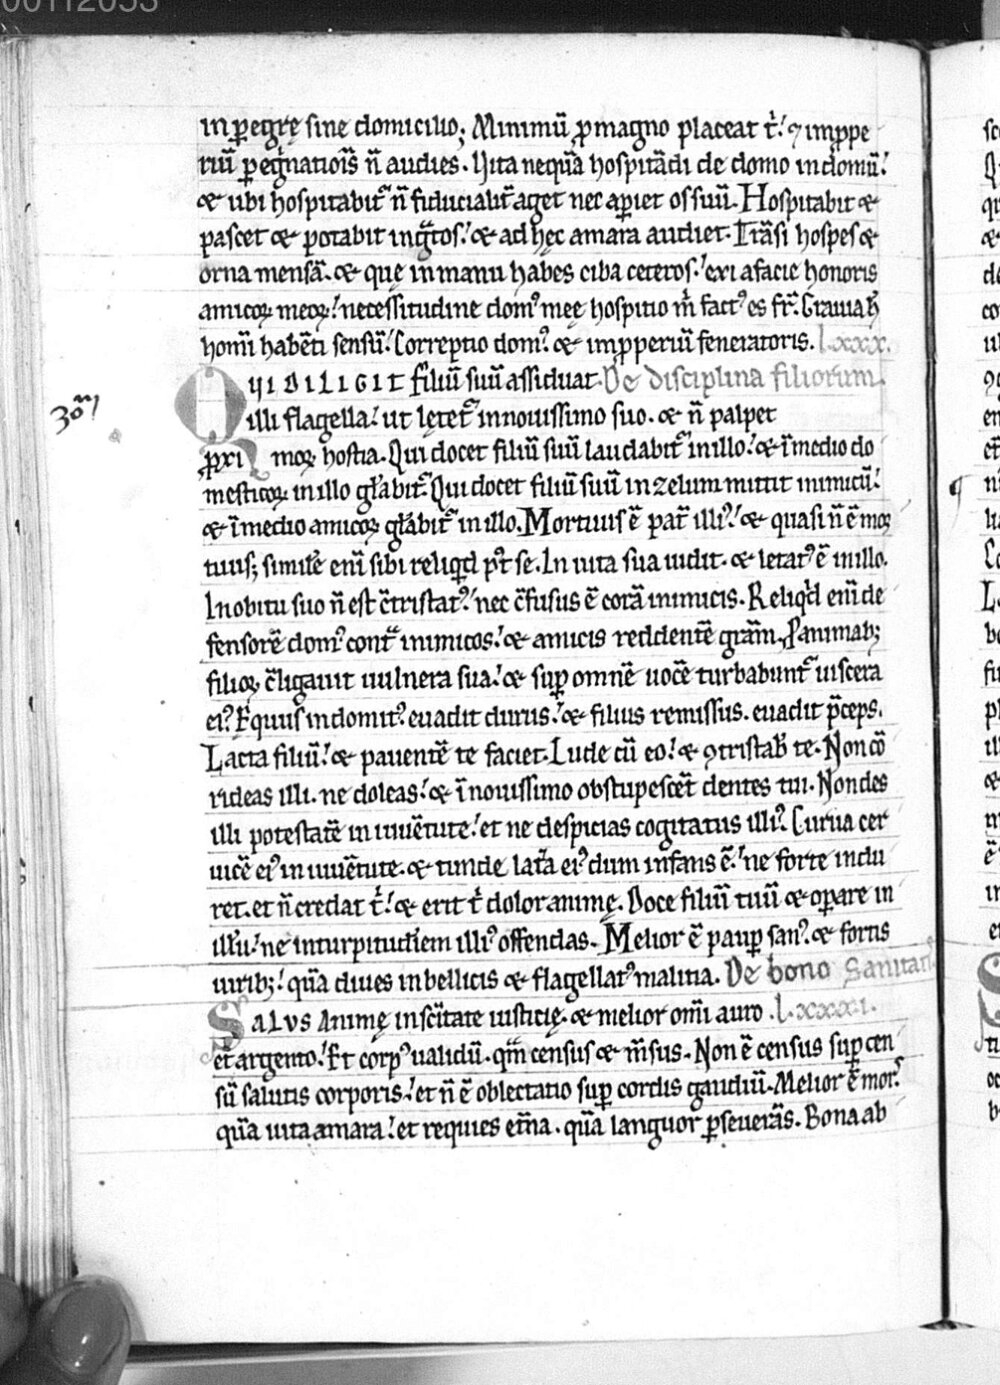 00112053
in ꝑegrę sine domicilio; Minimū ꝓ magno placeat t̓.' ⁊ imꝓpe
riū ꝑeg̓natiōis n̄ audies. Vita nequā hospitādi de domo in domū.'
& ubi hospitabit᷑ n̄ fiduciabit᷑ aget nec aꝑiet os suū. Hospitabit &
pascet & potabit ing̃tos.' & ad hęc amara audiet. Trāsi hospes &
orna mensā. & quę in manu habes ciba ceteros.' exi a facie honoris
amicoꝝ meoꝝ.' necessitudine domꝰ meę hospitio m̓ factꝰ es fr̄. Grauia h̓
homī habēti sensū.' Correptio domꝰ. & imꝓperiū feneratoris. Lxxx.
QVI DILIGIT filiū suū assiduat De disciplina filiorum.
illi flagella.' ut lętet᷑ in nouissimo suo. & n̄ palpet
30m̄
ꝓxi moꝝ hostia. Qui docet filiū suū laudabit᷑ in illo.' & ī medio do
mesticoꝝ in illo gl̄abit᷑. Qui docet filiū suū in zelum mittit inimicū.'
& ī medio amicoꝝ gl̄abit᷑ in illo. Mortuus ē pat̄ illiꝰ.' & quasi n̄ ē moꝝ
tuus; simile enī sibi reliqd̓ p̓t se. In uita sua uidit. & letatꝰ ē in illo.
In obitu suo n̄ est c̄tristatꝰ.' nec c̄fusus ē corā inimicis. Reliqd̓ enī de
fensorē domꝰ cont᷑ inimicos.' & amicis reddentē grām. P animabꝫ
filioꝝ c̄ligauit uulnera sua.' & suꝑ omnē uocē turbabunt᷑ uiscera
eiꝰ. Equus indomitꝰ euadit durus.' & filius remissus. euadit p̄ceps.
Lacta filiū.' & pauentē te faciet. Lude cū eo.' & ꝯtristab̓ te. Non cō
rideas illi. ne doleas.' & ī nouissimo obstupescēt dentes tui. Non des
illi potestatē in iuuētute.' et ne despicias cogitatus illiꝰ. Curua cer
uicē eiꝰ in iuuētute. & tunde lat̓a eiꝰ dum infans ē.' ne forte indu
ret. et n̄ credat t̓.' & erit t̓ dolor animę. Doce filiū tuū & oꝑare in
illū.' ne in turpitudīem illiꝰ offendas. Melior ē pauꝑ sanꝰ. & fortis
uiribꝫ.' quā diues inbellicis & flagellatꝰ malitia. De bono Sanitat̄
SALVS Animę in scītate iusticię. & melior omī auro. Lxxxxi.
et argento.' Et corpꝰ ualidū. qm̄ census & m̄sus. Non ē census suꝑ cen
sū salutis corporis.' et n̄ ē oblectatio suꝑ cordis gaudiū. Melior ē morꝰ
quā uita amara.' et requies et̄na. quā languor ꝑseuerās. Bona ab